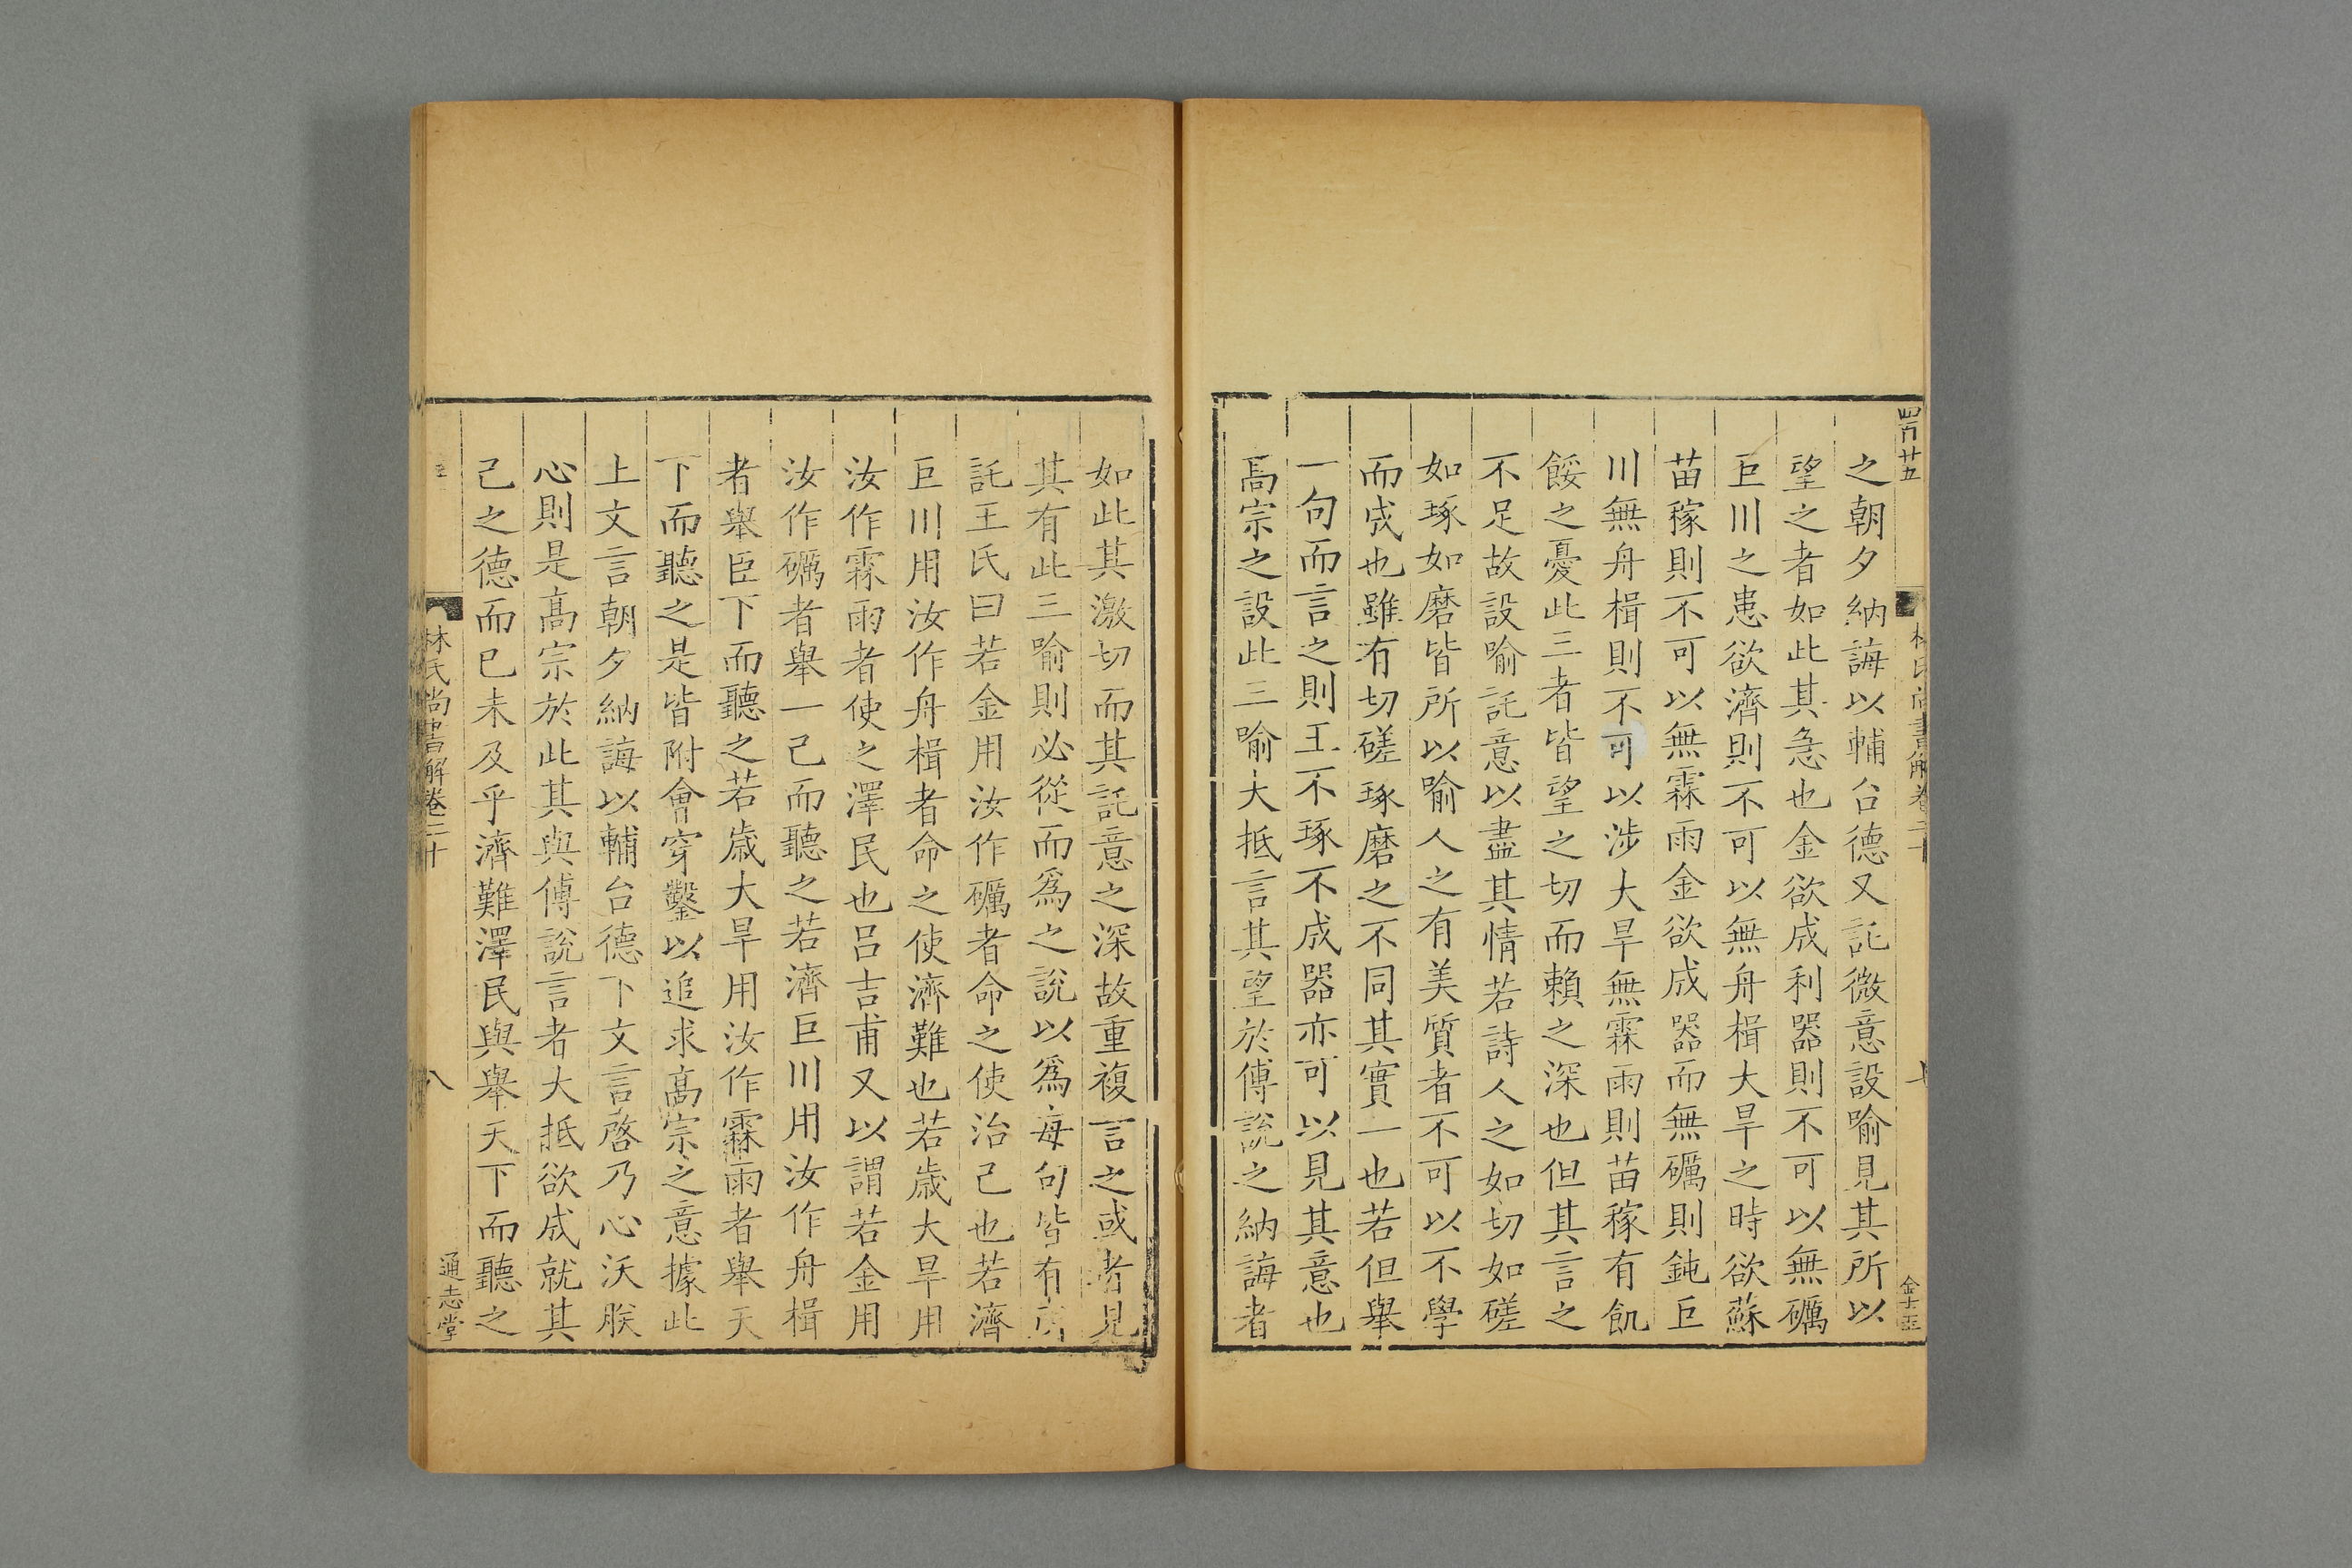 之朝夕納誨以輔台德又託微意設喻見其所以
望之者如此其急也金欲成利器則不可以無礪
巨川之患欲濟則不可以無舟楫大旱之時欲蘇
苗稼則不可以無霖雨金欲成器而無礪則鈍巨
川無舟楫則不可以涉大旱無霖雨則苗稼有飢
餒之憂此三者皆望之切而賴之深也但其言之
不足故設喻託意以盡其情若詩人之如切如磋
如琢如磨皆所以喻人之有美質者不可以不學
而成也雖有切磋琢磨之不同其實一也若但舉
一句而言之則玉不琢不成器亦可以見其意也
高宗之設此三喻大抵言其望於傅說之納誨者
如此其激切而其託意之深故重複言之或者見
其有此三喻則必從而爲之說以爲每句皆有所
託王氏曰若金用汝作礪者命之使治己也若濟
巨川用汝作舟楫者命之使濟難也若歲大旱用
汝作霖雨者使之澤民也呂吉甫又以謂若金用
汝作礪者舉一己而聽之若濟巨川用汝作舟楫
者舉臣下而聽之若歲大旱用汝作霖雨者舉天
下而聽之是皆附會穿鑿以追求高宗之意據此
上文言朝夕納誨以輔台德下文言啓乃心沃朕
心則是高宗於此其與傅說言者大抵欲成就其
己之德而已未及乎濟難澤民與舉天下而聽之
林氏尚書解卷二十
八
通志堂